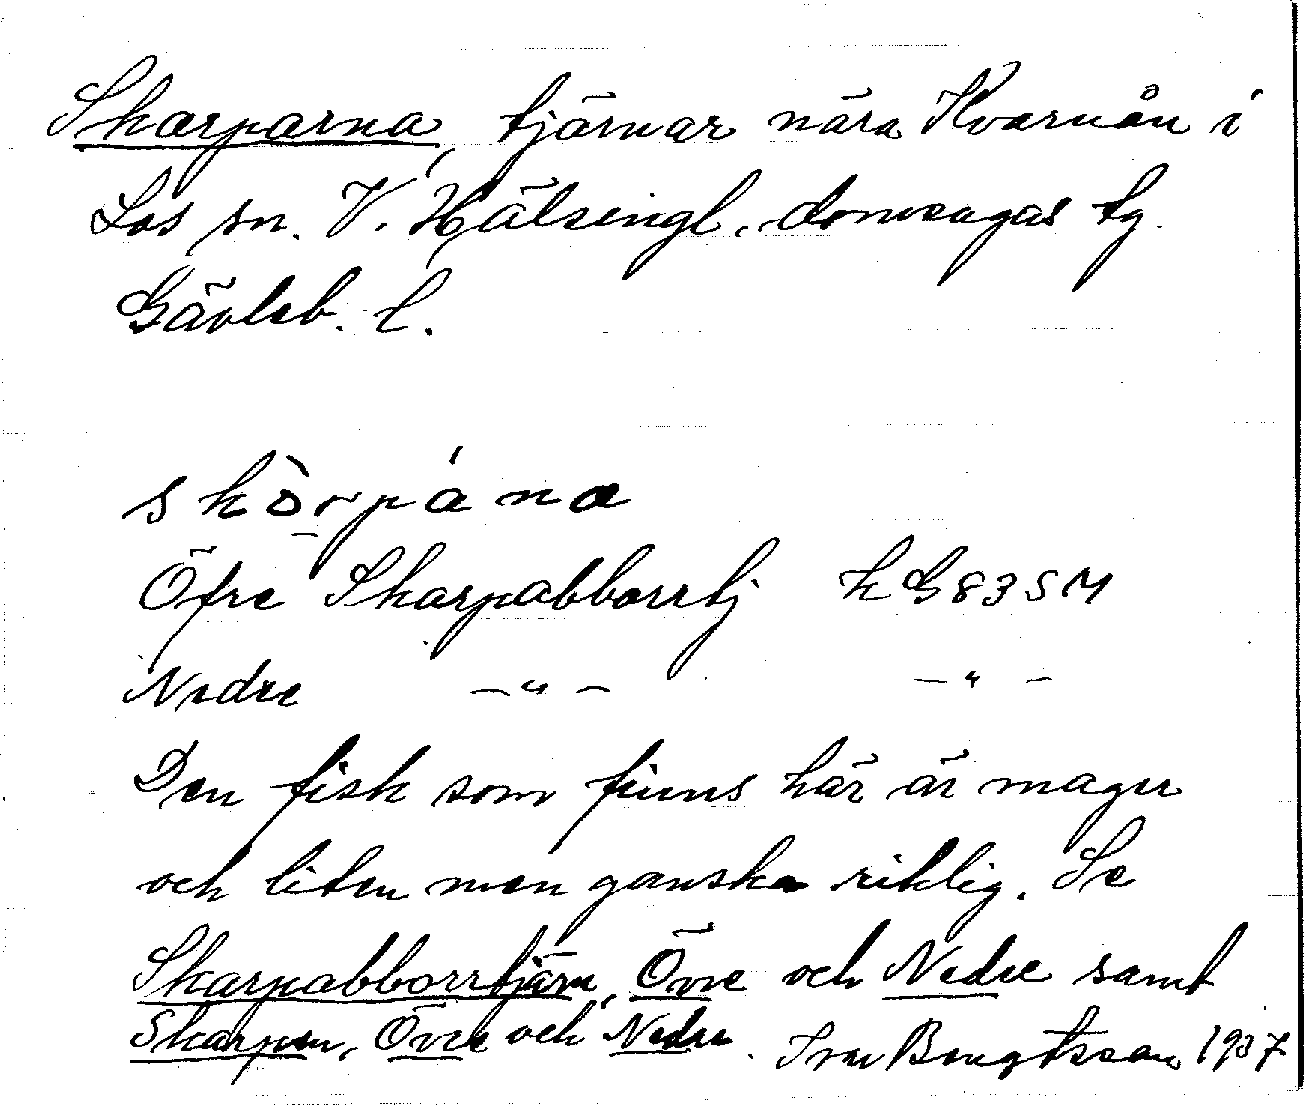 Skarparna, tjärnar nära Kvarnån i
Los sn. V. Hälsingl. domsagas tg.
Gävleb. l.
skò̱rpána
Öfre Skarpabborrtj K G 83 S M
Nedre —"— —"—
Den fisk som finns här är mager
och liten men ganska riklig. Se
Skarpabborrtjärn, Övre och Nedre samt
Skarpen, Övre och Nedre. Ivar Bengtsson 1937